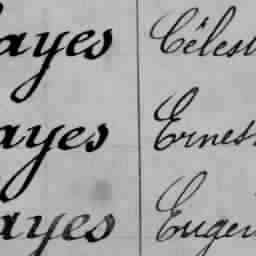 ayes Célest
ayes Ernes
ayes Eugen